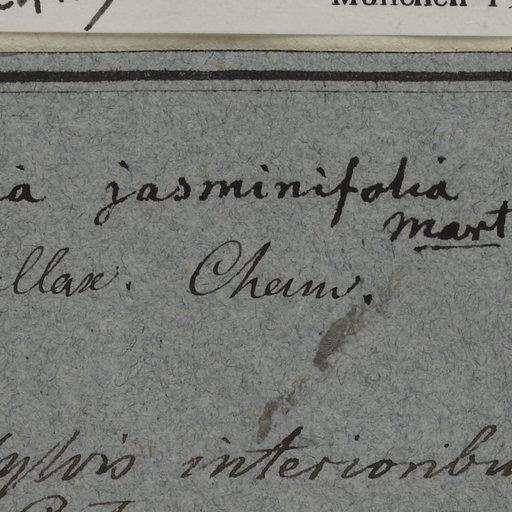 München
ia jasminifolia
Mart
llax. Cham.
sylvis interioribu